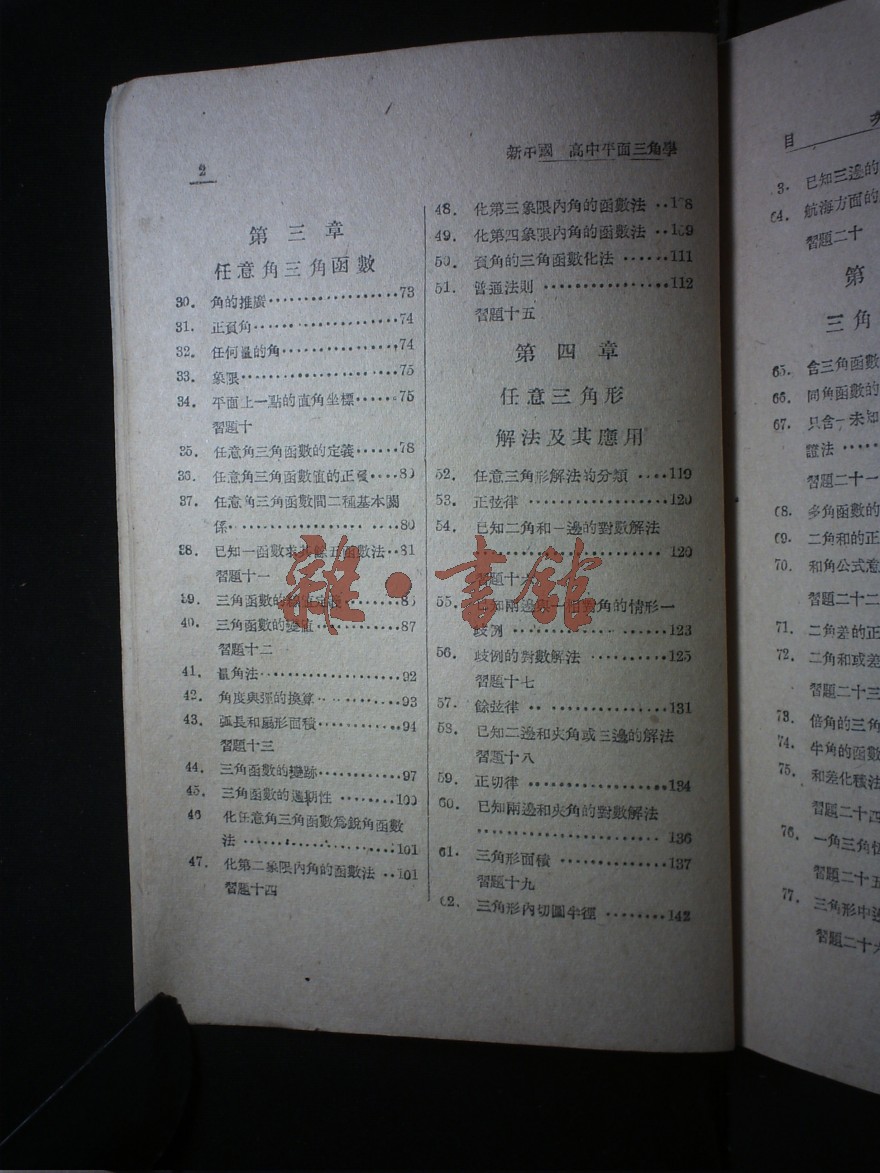 2
新中國 高中平面三角學
第三章
任意角三角函數
30. 角的推廣··················73
31. 正負角····················74
32. 任何量的角················74
33. 象限······················75
34. 平面上一點的直角坐標······75
習題十
35. 任意角三角函數的定義······78
36. 任意角三角函數值的正負····80
37. 任意角三角函數間二種基本關
係·····················80
38. 已知一函數求其餘五函數法··81
習題十一
39. 三角函數的
40. 三角函數的變值············87
習題十二
41. 量角法····················92
42. 角度與弳的換算············93
43. 弧長和扇形面積············94
習題十三
44. 三角函數的變跡············97
45. 三角函數的週期性 ········100
46 化任意角三角函數爲銳角函數
法 ·····················101
47. 化第二象限內角的函數法 ··101
習題十四
48. 化第三象限內角的函數法 ··108
49. 化第四象限內角的函數法 ··109
50. 負角的三角函數化法 ······111
51. 普通法則 ················112
習題十五
第四章
任意三角形
解法及其應用
52. 任意三角形解法的分類 ····119
53. 正弦律 ··················120
54. 已知二角和一邊的對數解法
························120
習題十六
55. 已知兩邊與一對角的情形一
歧例 ··················123
56. 歧例的對數解法 ··········125
習題十七
57. 餘弦律 ·· ··············131
58. 已知二邊和夾角或三邊的解法
習題十八
59. 正切律 ··················134
60. 已知兩邊和夾角的對數解法
························ 136
61. 三角形面積 ··············137
習題十九
62. 三角形內切圓半徑 ········142
雜·書館
目
3. 已知三邊的
64. 航海方面的
習題二十
第
三角
65. 含三角函數
66. 同角函數的
67. 只含一未知
證法 ·····
習題二十一
68. 多角函數的
69. 二角和的正
70. 和角公式
習題二十二
71. 二角差的正
72. 二角和或差
習題二十三
73. 倍角的三角
74. 半角的函數
75. 和差化積法
習題二十四
76. 一角三角
習題二十五
77. 三角形中邊
習題二十六